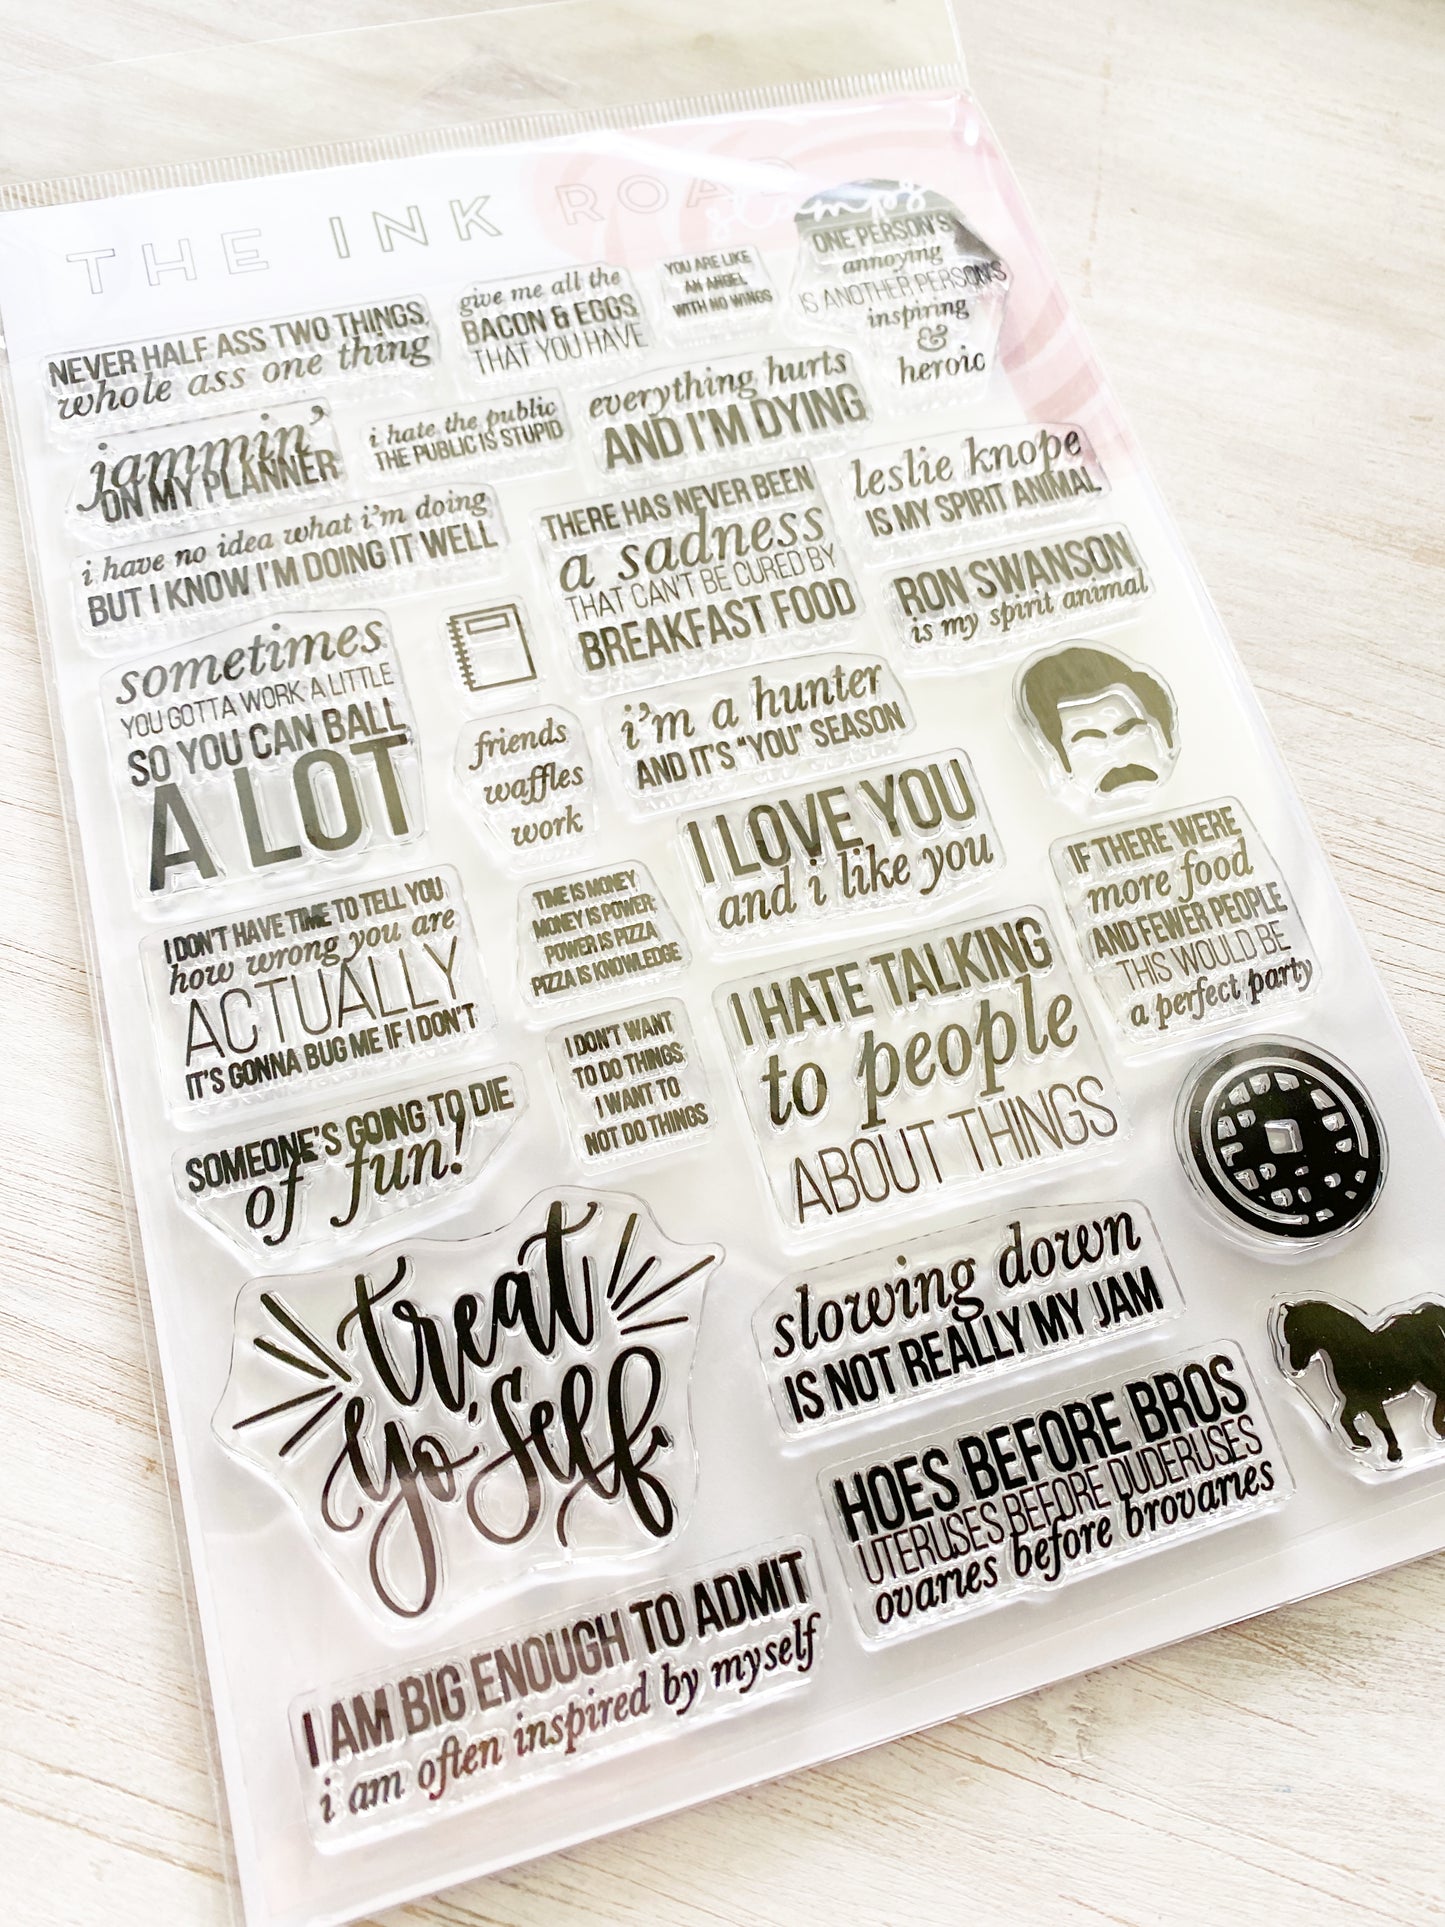 THE INK ROAD
stamps
NEVER HALF ASS TWO THINGS
whole ass one thing
give me all the
BACON & EGGS
THAT YOU HAVE
YOU ARE LIKE
AN ANGEL
WITH NO WINGS
ONE PERSON'S
annoying
IS ANOTHER PERSON'S
inspiring
&
heroic
jammin'
ON MY PLANNER
i hate the public
THE PUBLIC IS STUPID
everything hurts
AND I'M DYING
leslie knope
IS MY SPIRIT ANIMAL
i have no idea what i'm doing
BUT I KNOW I'M DOING IT WELL
THERE HAS NEVER BEEN
a sadness
THAT CAN'T BE CURED BY
BREAKFAST FOOD
RON SWANSON
is my spirit animal
sometimes
YOU GOTTA WORK A LITTLE
SO YOU CAN BALL
A LOT
friends
waffles
work
i'm a hunter
AND IT'S "YOU" SEASON
I LOVE YOU
and i like you
IF THERE WERE
more food
AND FEWER PEOPLE
THIS WOULD BE
a perfect party
I DON'T HAVE TIME TO TELL YOU
how wrong you are
ACTUALLY
IT'S GONNA BUG ME IF I DON'T
TIME IS MONEY
MONEY IS POWER
POWER IS PIZZA
PIZZA IS KNOWLEDGE
I HATE TALKING
to people
ABOUT THINGS
I DON'T WANT
TO DO THINGS
I WANT TO
NOT DO THINGS
SOMEONE'S GOING TO DIE
of fun!
treat
yo'self
slowing down
IS NOT REALLY MY JAM
HOES BEFORE BROS
UTERUSES BEFORE DUDERUSES
ovaries before brovaries
I AM BIG ENOUGH TO ADMIT
i am often inspired by myself